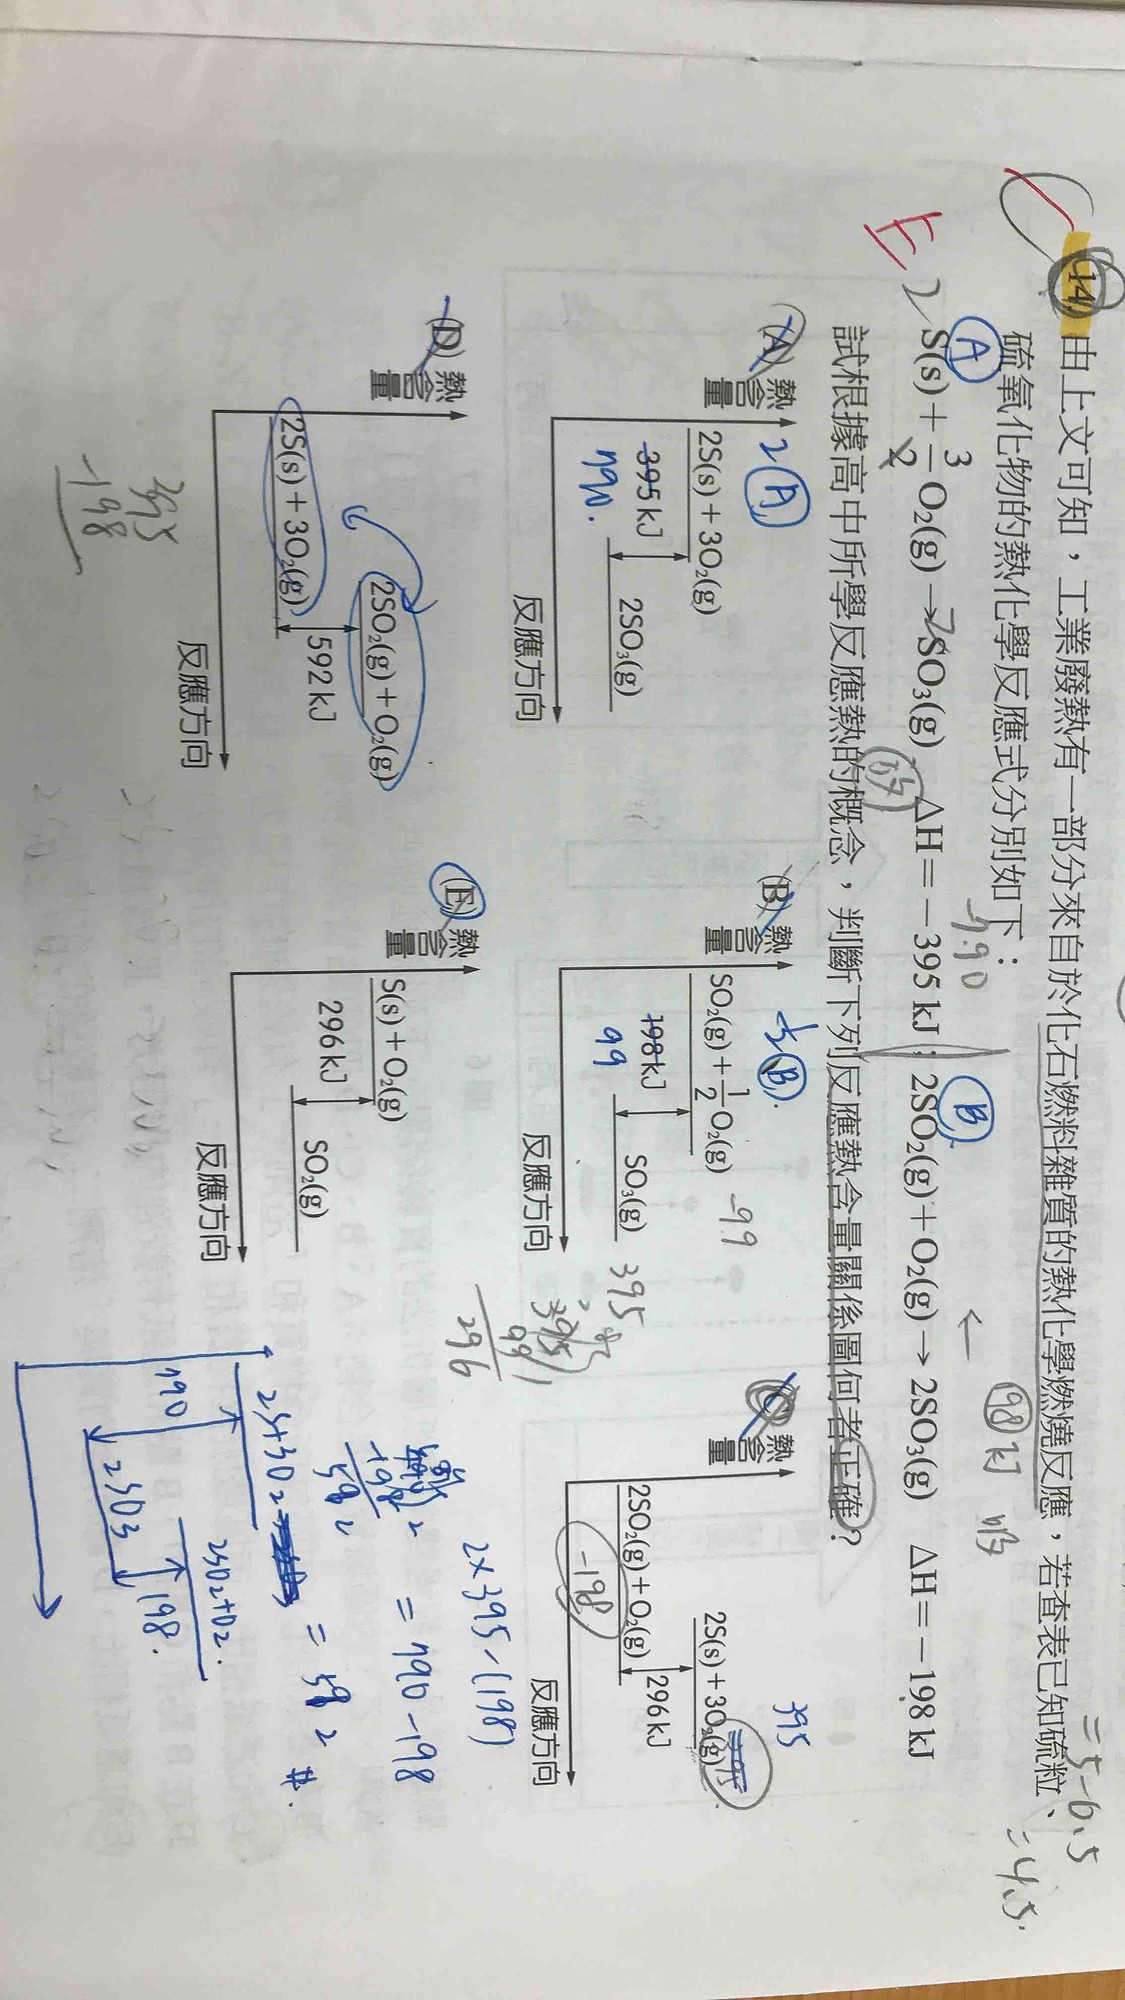 14. 由上文可知，工業廢熱有一部分來自於化石燃料雜質的熱化學燃燒反應，若查表已知硫粒、
硫氧化物的熱化學反應式分別如下：
A
-790
B
198 kJ
= 5-0.5
= 4.5.
E
S(s) + 3/2 O₂(g) → SO₃(g) ΔH = -395 kJ；2SO₂(g) + O₂(g) → 2SO₃(g) ΔH = -198 kJ
試根據高中所學反應熱的概念，判斷下列反應熱含量關係圖何者正確？
(A) 熱含量
2(A)
2S(s) + 3O₂(g)
395 kJ
790.
2SO₃(g)
反應方向
(B) 熱含量
½(B).
SO₂(g) + 1/2 O₂(g)
198 kJ
99
SO₃(g)
反應方向
-99
(C) 熱含量
395
2S(s) + 3O₂(g)
296 kJ
2SO₂(g) + O₂(g)
-198
反應方向
(D) 熱含量
2SO₂(g) + O₂(g)
592 kJ
2S(s) + 3O₂(g)
反應方向
395
-198
(E) 熱含量
S(s) + O₂(g)
296 kJ
SO₂(g)
反應方向
395
395
99
296
2×395-(198)
= 790-198
= 592 #.
-198
592
2S+3O₂
790
2SO₃
2SO₂+O₂.
198.